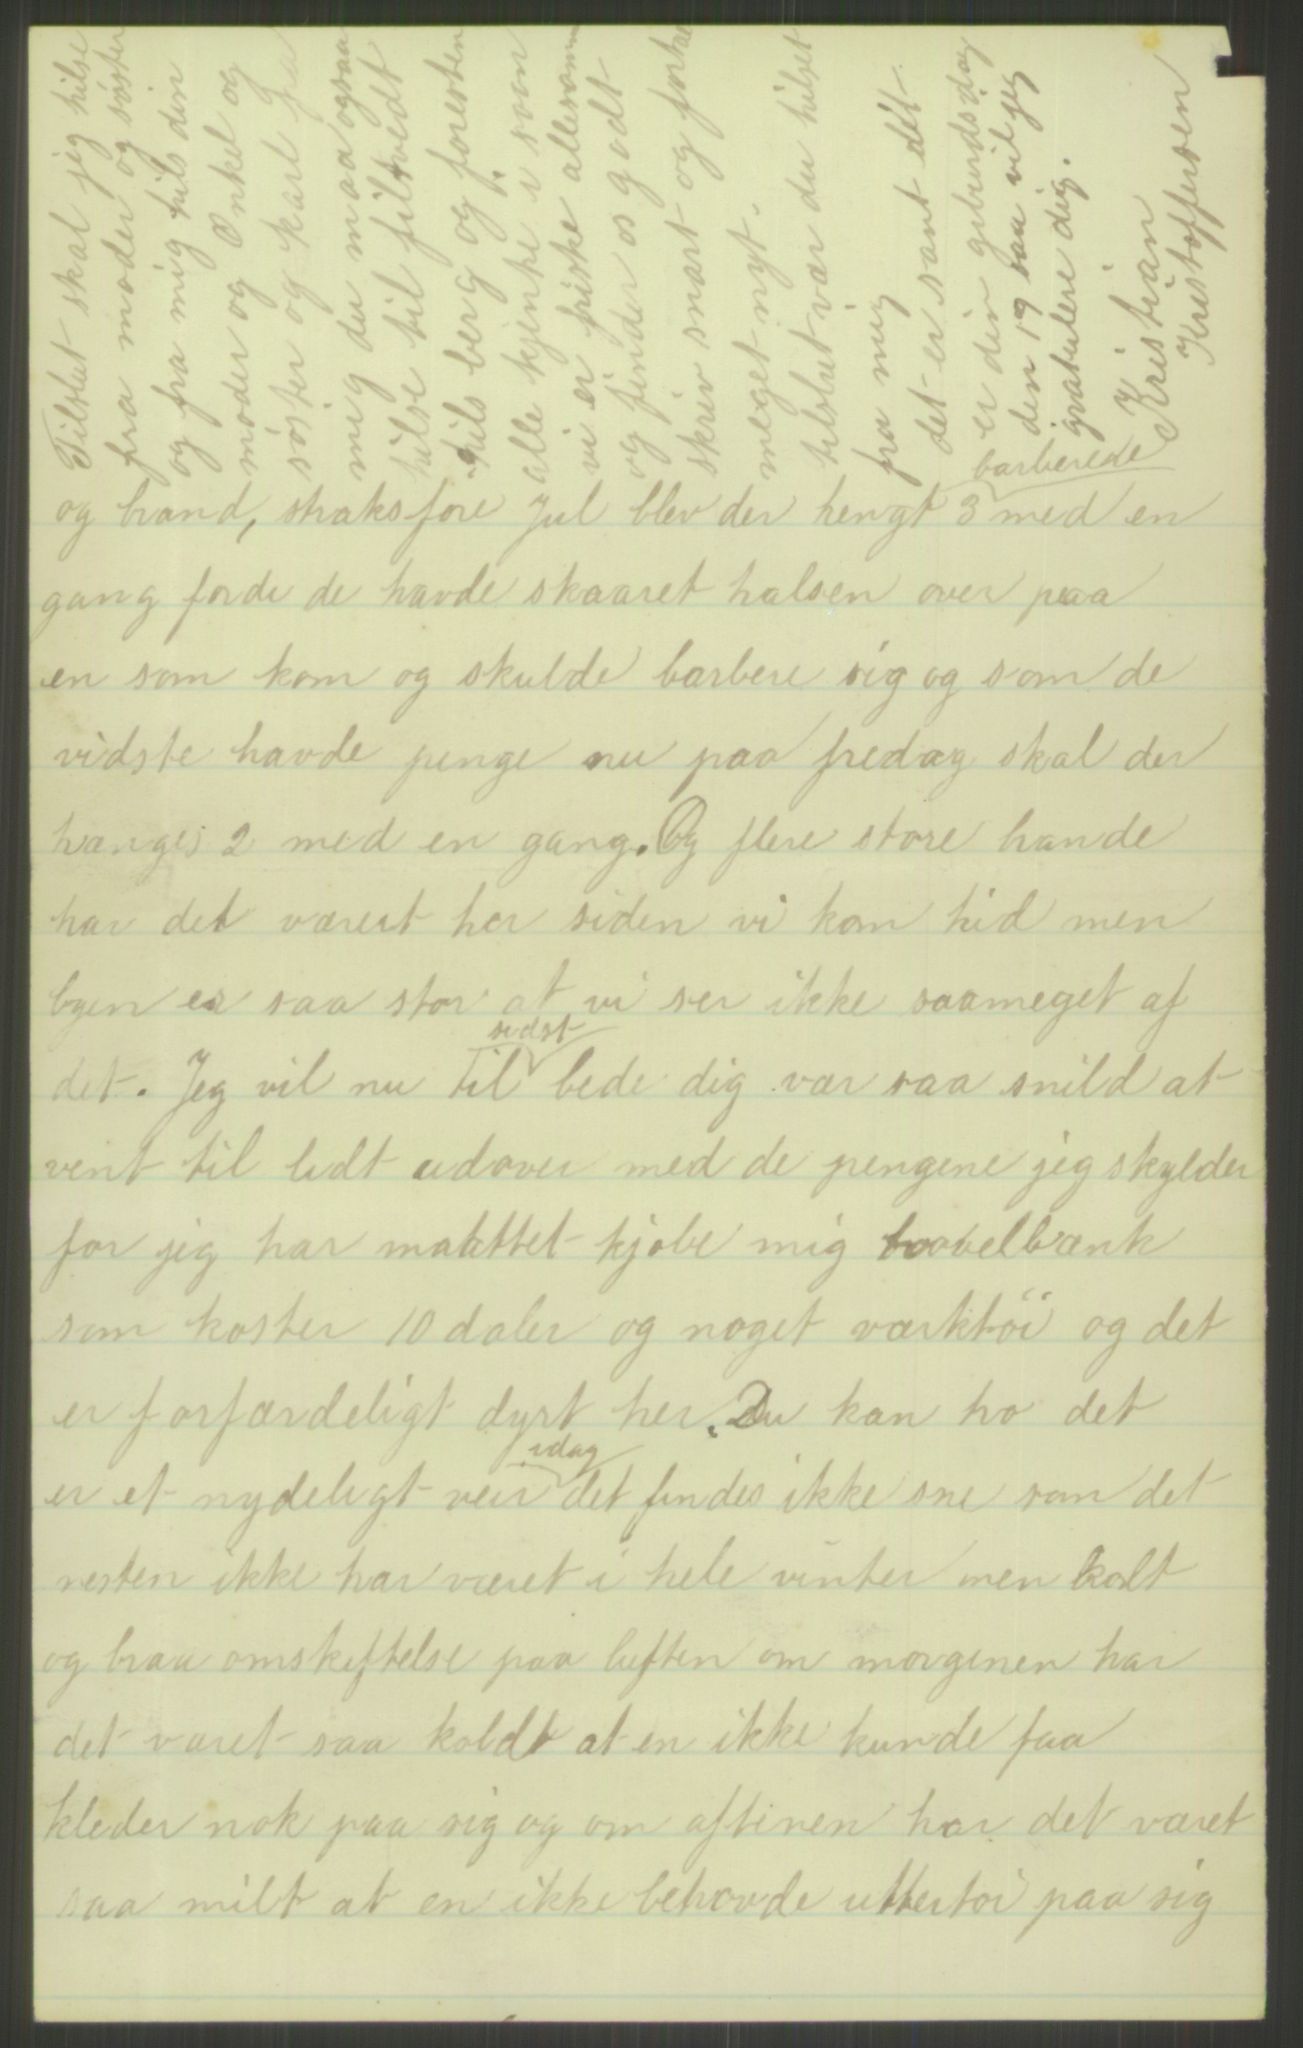 og brand, straks före Jul blev der hengt 3 barberede med en
gang fordi de havde skaaret halsen over paa
en som kom og skulde barbere sig og som de
vidste havde penge nu paa fredag skal der
hænges 2 med en gang. Og flere store brande
har det værest her siden vi kom hid men
byen er saa stor at vi ser ikke saameget af
det. Jeg vil nu til sidst bede dig vær saa snild at
vent til lidt udover med de pengene jeg skylder
for jeg har maattet kjøbe mig hovelbænk
som koster 10 daler og noget værktöi og det
er forfærdeligt dyrt her. Du kan tro det
er et nydeligt veir idag det findes ikke sne som det
nesten ikke har været i hele vinter men koldt
og braa omskiftelse paa luften om morgenen har
det været saa koldt at en ikke kunde faa
kleder nok paa sig og om aftenen har det været
saa milt at en ikke behovde uttertöi paa sig
Tilslut skal jeg hilse
fra moder og söster
og fra mig hils din
moder og Onkel og
söster og Karl fra
mig du maa ogsaa
hilse til filtvedt
hils berg og foresten
alle kjente i son
vi er friske allesammen
og finder os godt
skriv snart og fortæl
meget nyt.
tilslut vær du hilset
fra mig
det er sant det
er din geburdsdag
den 19 saa vil jeg
gratulere dig.
Kristian
Kristoffersen